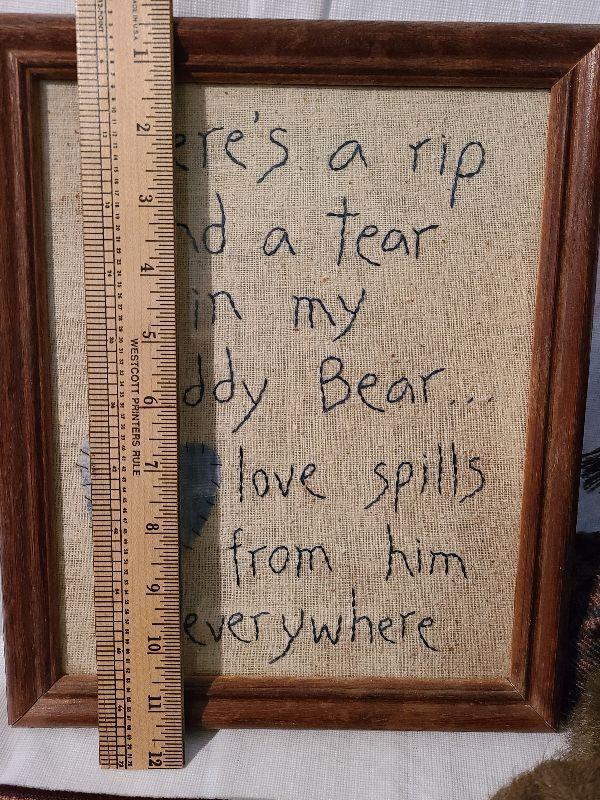 MADE IN U.S.A.
1
2
3
4
5
6
7
8
9
10
11
12
WESTCOTT PRINTERS RULE
ere's a rip
nd a tear
in my
ddy Bear...
love spills
from him
everywhere